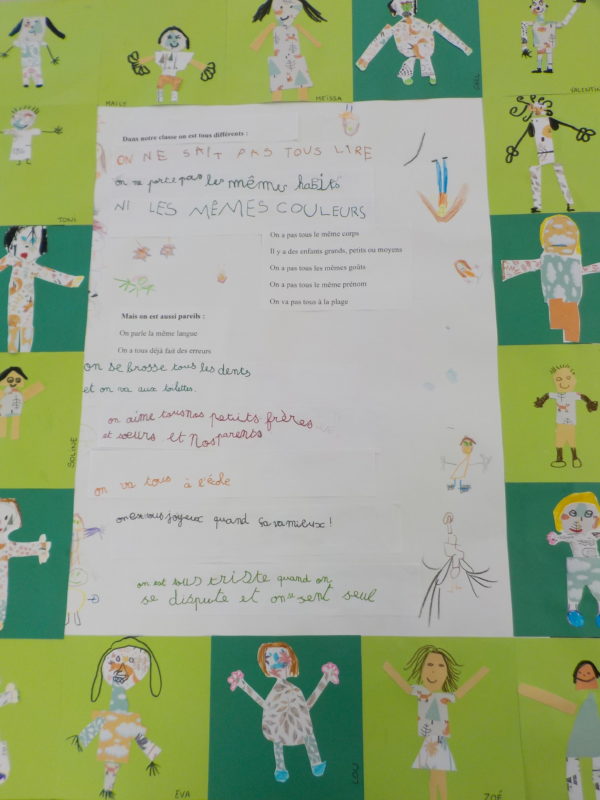 MAILY
MEÏSSA
VALENTIN
TONI
Dans notre classe on est tous différents :
ON NE SAIT PAS TOUS LIRE
on ne porte pas les mêmes habits
NI LES MÊMES COULEURS
On a pas tous le même corps
Il y a des enfants grands, petits ou moyens
On a pas tous les mêmes goûts
On a pas tous le même prénom
On va pas tous à la plage
Mais on est aussi pareils :
On parle la même langue
On a tous déjà fait des erreurs
on se brosse tous les dents
et on va aux toilettes.
on aime tous nos petits frères
et soeurs et Nos parents
on va tous à l'école
on est tous joyeux quand ça va mieux !
on est tous triste quand on
se dispute et on se sent seul
SOLINE
EVA
LOU
ZOÉ